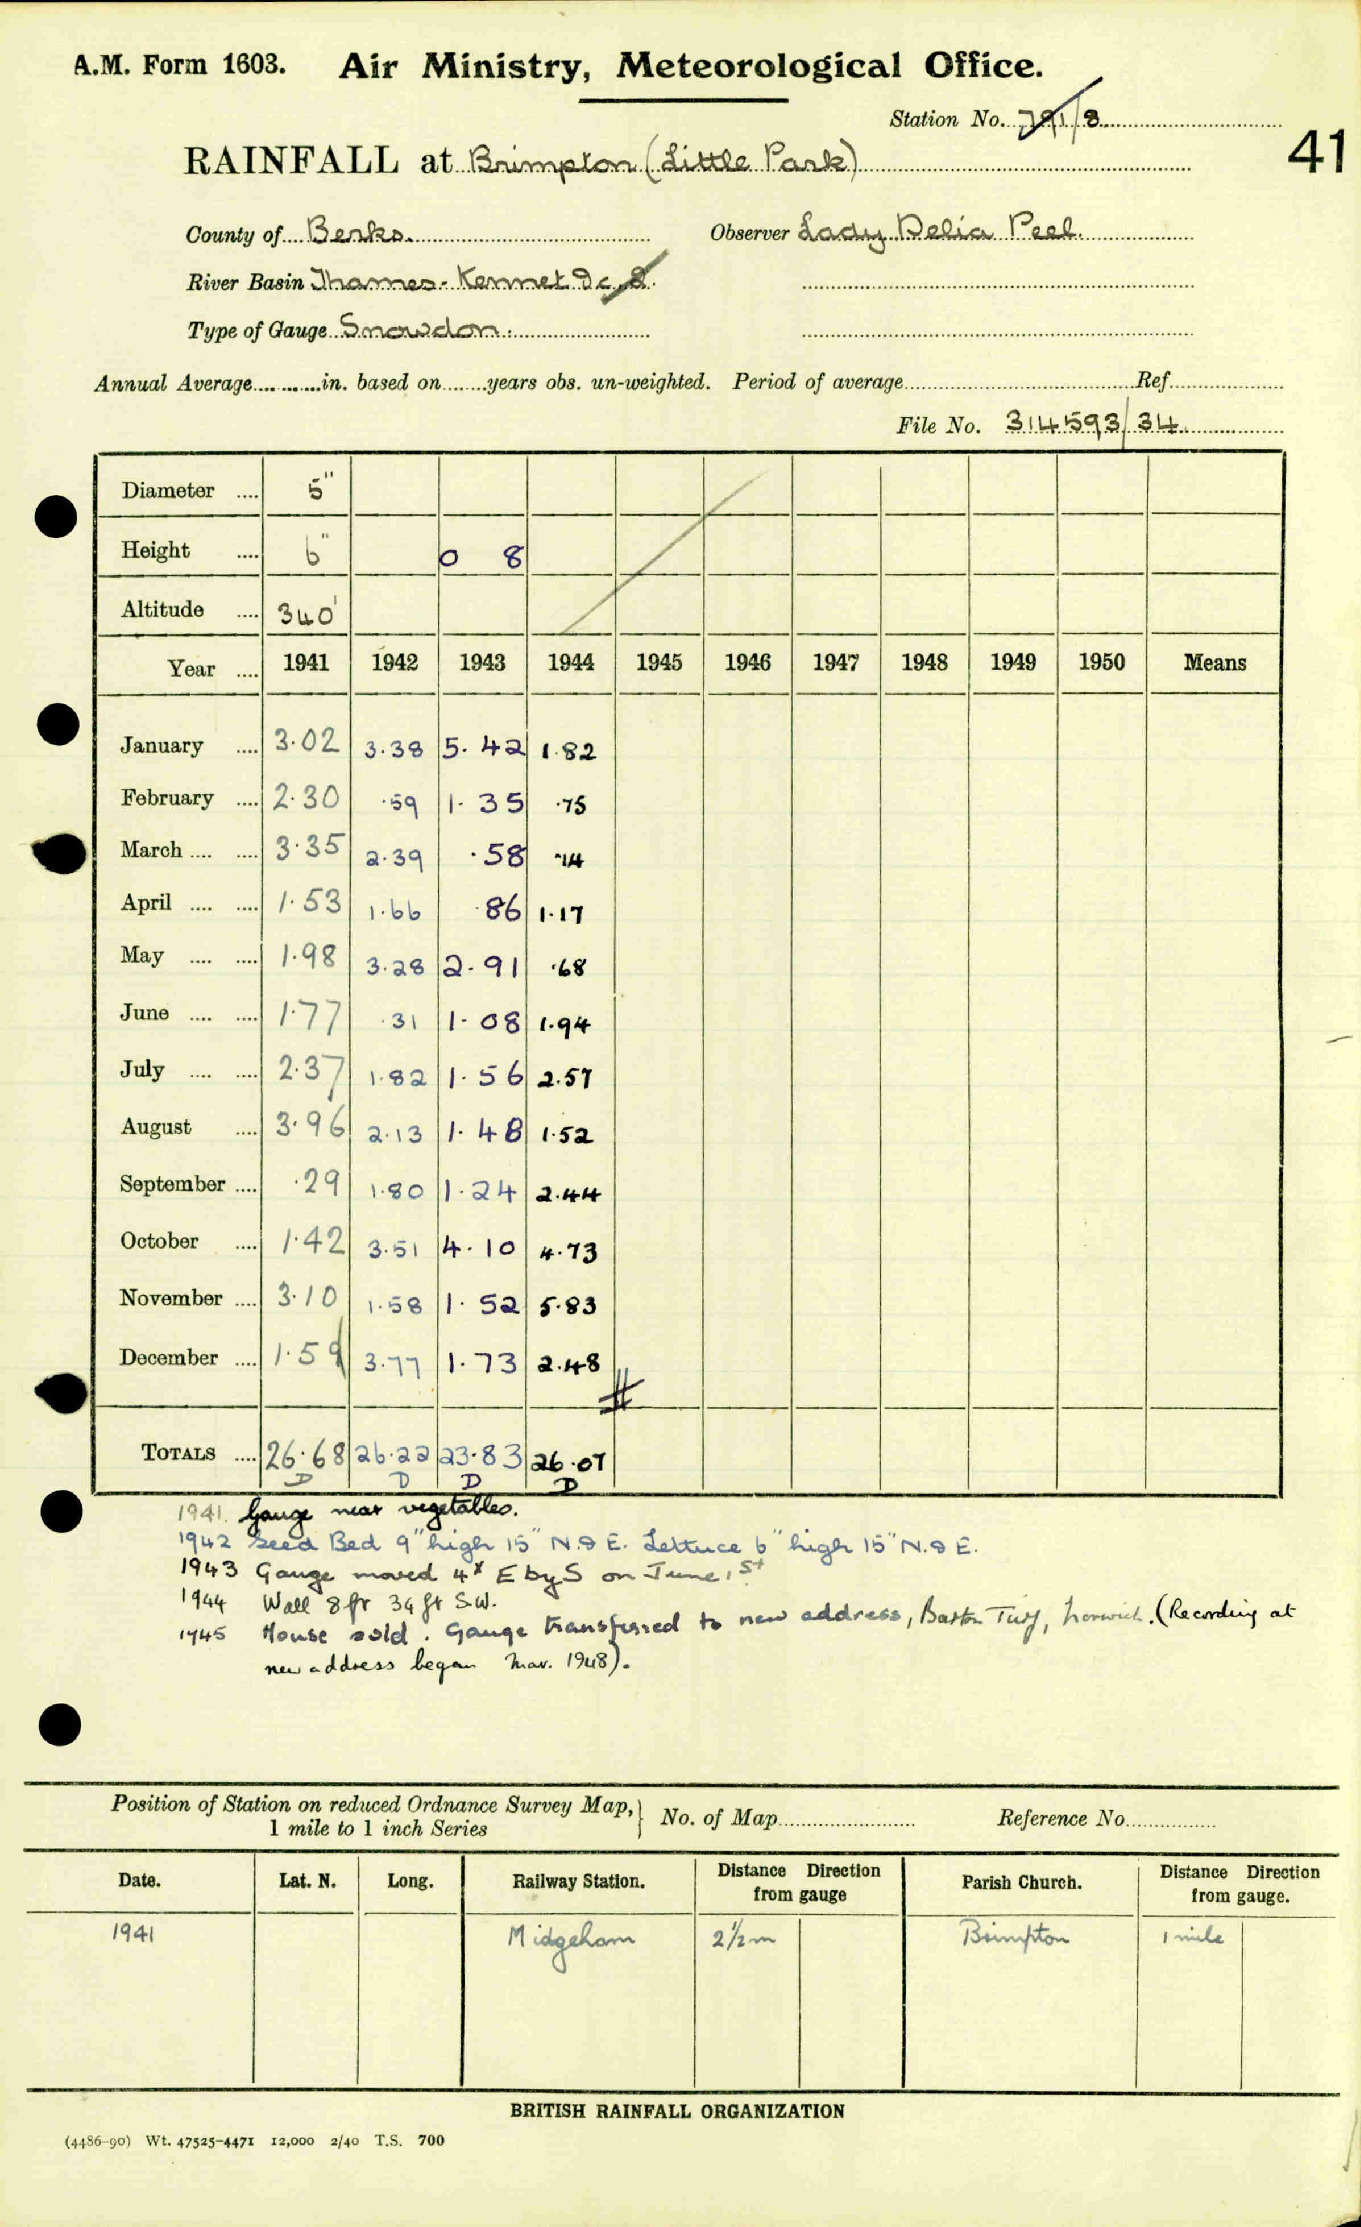 A.M. Form 1603. Air Ministry, Meteorological Office.
Station No. 791/8
41
RAINFALL at Brimpton (Little Park)
County of Berks. Observer Lady Delia Peel.
River Basin Thames - Kennet &c, 8.
Type of Gauge Snowdon.
Annual Average in. based on years obs. un-weighted. Period of average Ref
File No. 314593/34
Diameter 5"
Height 6" 0 8
Altitude 340'
Year 1941 1942 1943 1944 1945 1946 1947 1948 1949 1950 Means
January 3.02 3.38 5.42 1.82
February 2.30 .59 1.35 .75
March 3.35 2.39 .58 .14
April 1.53 1.66 .86 1.17
May 1.98 3.28 2.91 .68
June 1.77 .31 1.08 1.94
July 2.37 1.82 1.56 2.57
August 3.96 2.13 1.48 1.52
September .29 1.80 1.24 2.44
October 1.42 3.51 4.10 4.73
November 3.10 1.58 1.52 5.83
December 1.59 3.77 1.73 2.48
TOTALS 26.68 26.22 23.83 26.07
D D D D
1941. Gauge near vegetables.
1942 Seed Bed 9" high 15" N.& E. Lettuce 6" high 15" N.& E.
1943 Gauge moved 4x E by S on June 1st
1944 Wall 8ft 34 ft S.W.
1945 House sold. Gauge transferred to new address, Barton Turf, Norwich. (Recording at
new address began Mar. 1948).
Position of Station on reduced Ordnance Survey Map, } No. of Map Reference No.
1 mile to 1 inch Series
Date. Lat. N. Long. Railway Station. Distance Direction from gauge Parish Church. Distance Direction from gauge.
1941 Midgeham 2½m Brimpton 1 mile
BRITISH RAINFALL ORGANIZATION
(4486-90) Wt. 47525-4471 12,000 2/40 T.S. 700